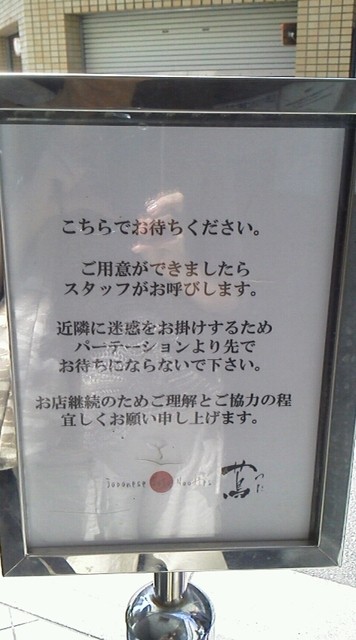 こちらでお待ちください。
ご用意ができましたら
スタッフがお呼びします。
近隣に迷惑をお掛けするため
パーテーションより先で
お待ちにならないで下さい。
お店継続のためご理解とご協力の程
宜しくお願い申し上げます。
Japanese Noodles
蔦 つた